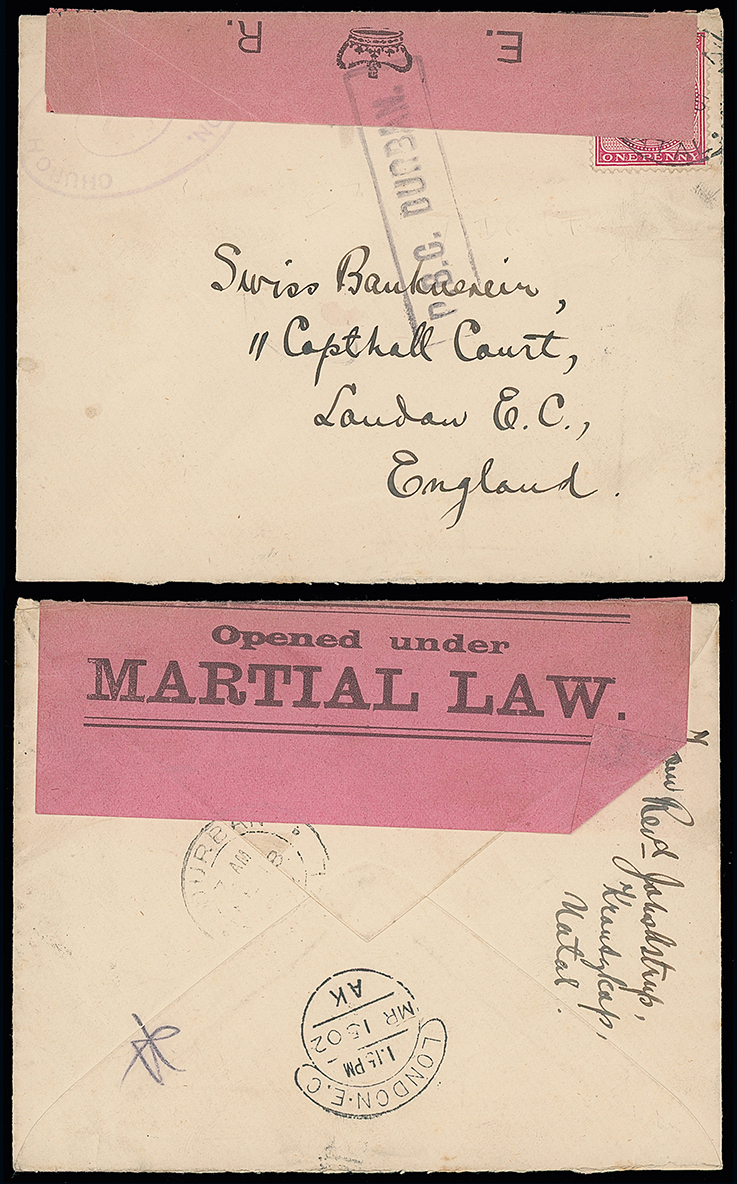 E. R.
ONE PENNY
CHURCH
P.S.C. DURBAN.
Swiss Bankverein,
11 Copthall Court,
London E.C.,
England.
Opened under
MARTIAL LAW.
Revd
Krantzkop,
Natal.
DURBAN
7 AM
LONDON.E.C
1.15 PM
MR 15 02
AK